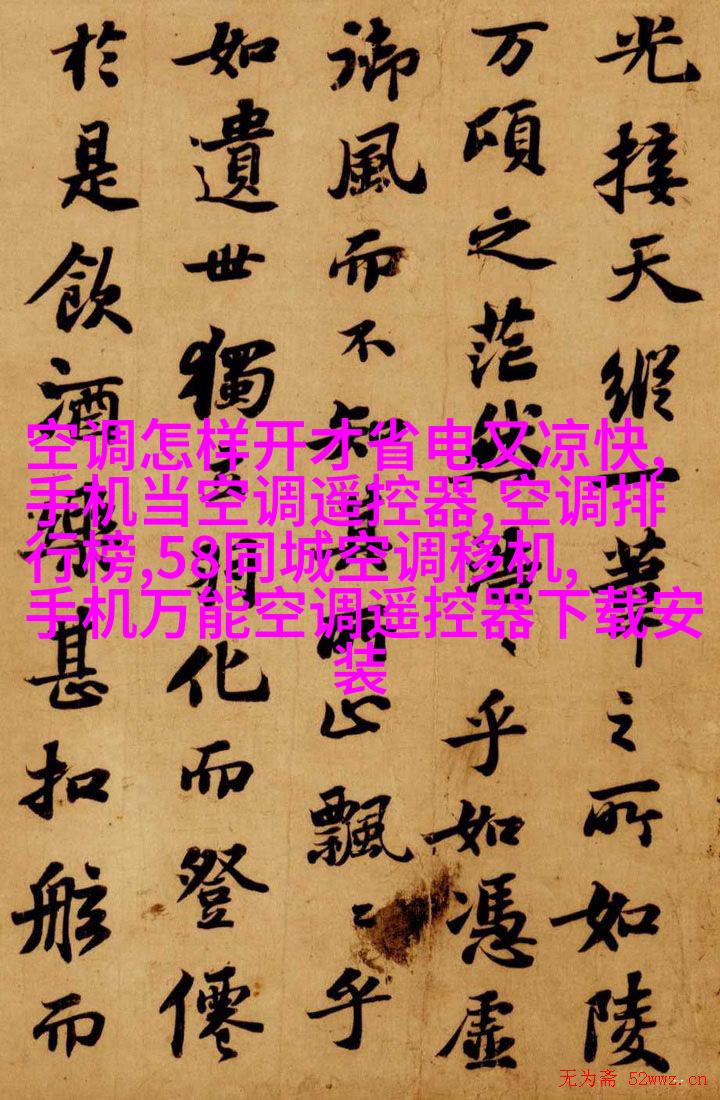 光接天縱一葦之所如陵
万頃之茫然浩〻乎如憑虛
御風而不知其所止飄〻乎
如遺世獨立羽化而登僊
於是飲酒樂甚扣舷而
空调怎样开才省电又凉快,
手机当空调遥控器,空调排
行榜,58同城空调移机,
手机万能空调遥控器下载安
装
无为斋 52wwz.cn